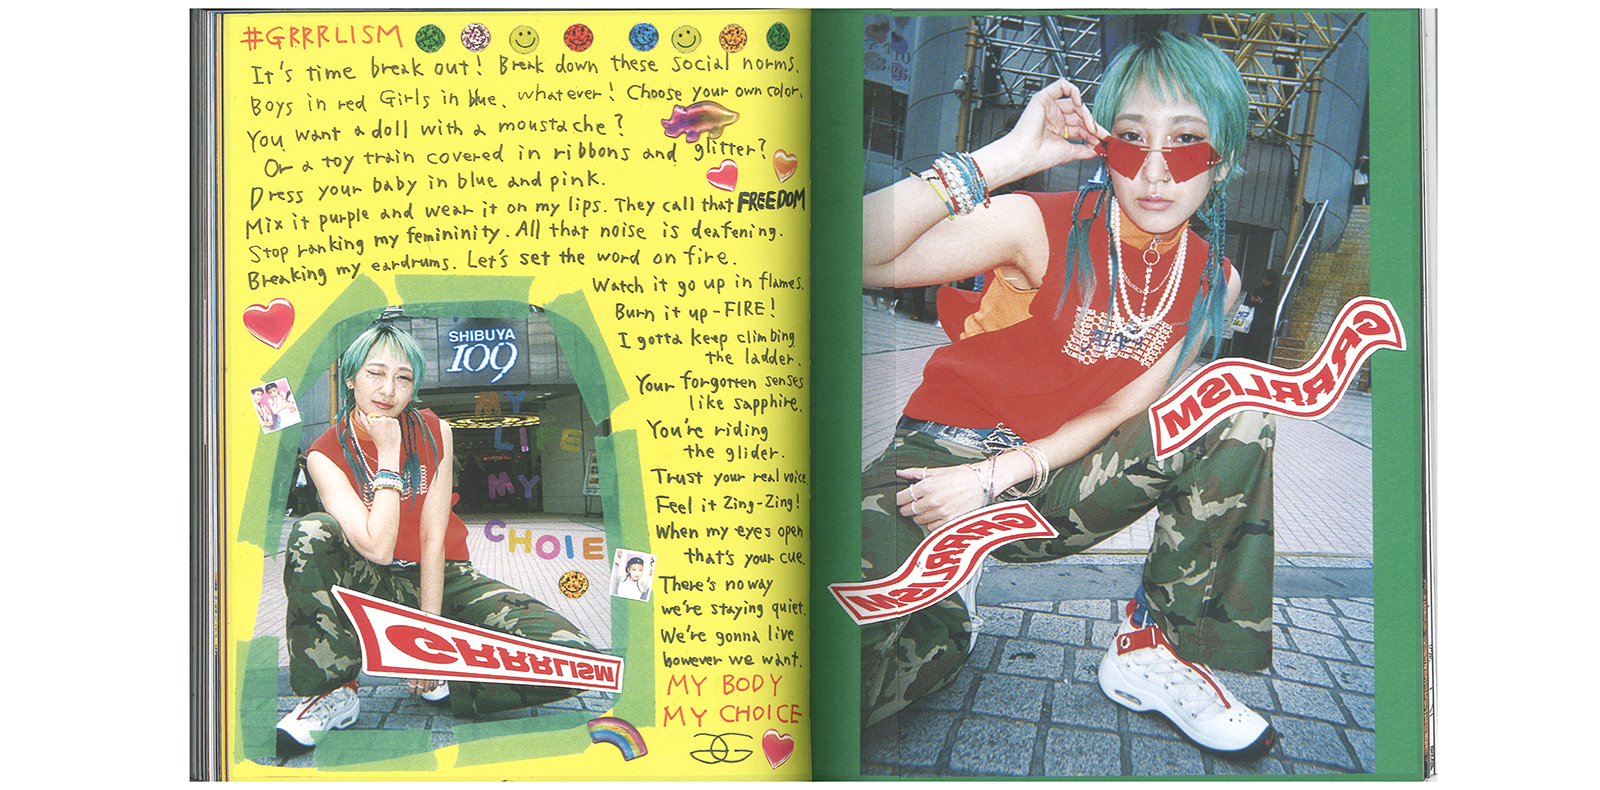 #GRRRLISM
It's time break out! Break down these social norms.
Boys in red Girls in blue, whatever! Choose your own color,
You want a doll with a moustache?
Or a toy train covered in ribbons and glitter?
Dress your baby in blue and pink.
Mix it purple and wear it on my lips. They call that FREEDOM
Stop ranking my femininity. All that noise is deafening.
Breaking my eardrums. Let's set the word on fire.
Watch it go up in flames.
Burn it up-FIRE!
I gotta keep climbing
the ladder.
Your forgotten senses
like sapphire.
You're riding
the glider.
Trust your real voice
Feel it Zing-Zing!
When my eyes open
that's your cue.
There's no way
we're staying quiet.
We're gonna live
however we want.
MY BODY
MY CHOICE
GG
SHIBUYA
109
MY
LIE
MY
CHOIE
GRRRLISM
GRRRLISM
GRRRLISM